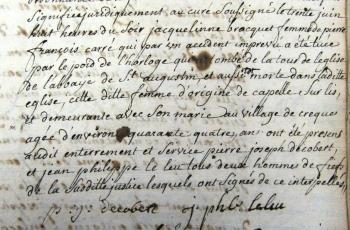 signifiée juridiquement, au curé soussigné le trente juin
huit heures du soir jacquelinne bracquet femme de pierre
françois carré qui par un accident imprevu a été tuée
par le poid de l'horloge qui tombé de la tour de l'eglise
de l'abbaye de St augustin, et aussitot morte dans laditte
eglise, cette ditte femme d'origine de capelle sur lis,
et demeurante avec son marie au village de creques
agée d'environ quarante quatre, ans ont été present
audit enterrement et service pierre joseph decobert,
et jean philippe le leu tous deux hommes de fiefs
de la sudditte justice lesquels ont signés de ce interpellés,
p. j. decobert j ph le leu